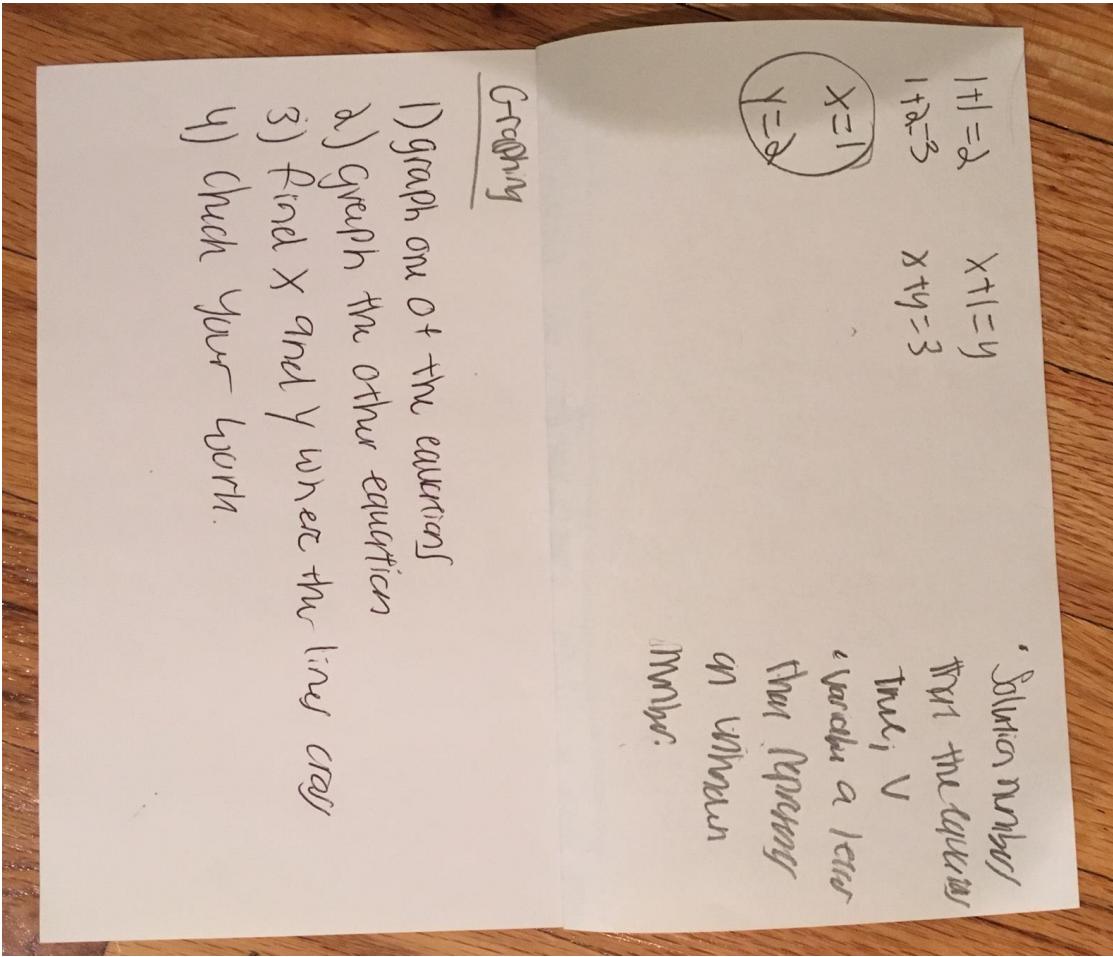 1+1=2
1+2=3
x=1
y=2
x+1=y
x+y=3
• Solution numbers
that the equations
true, V
• variable a letter
that represents
an unknown
number.
Graphing
1) graph one of the equations
2) graph the other equation
3) find x and y where the lines cross
4) check your work.